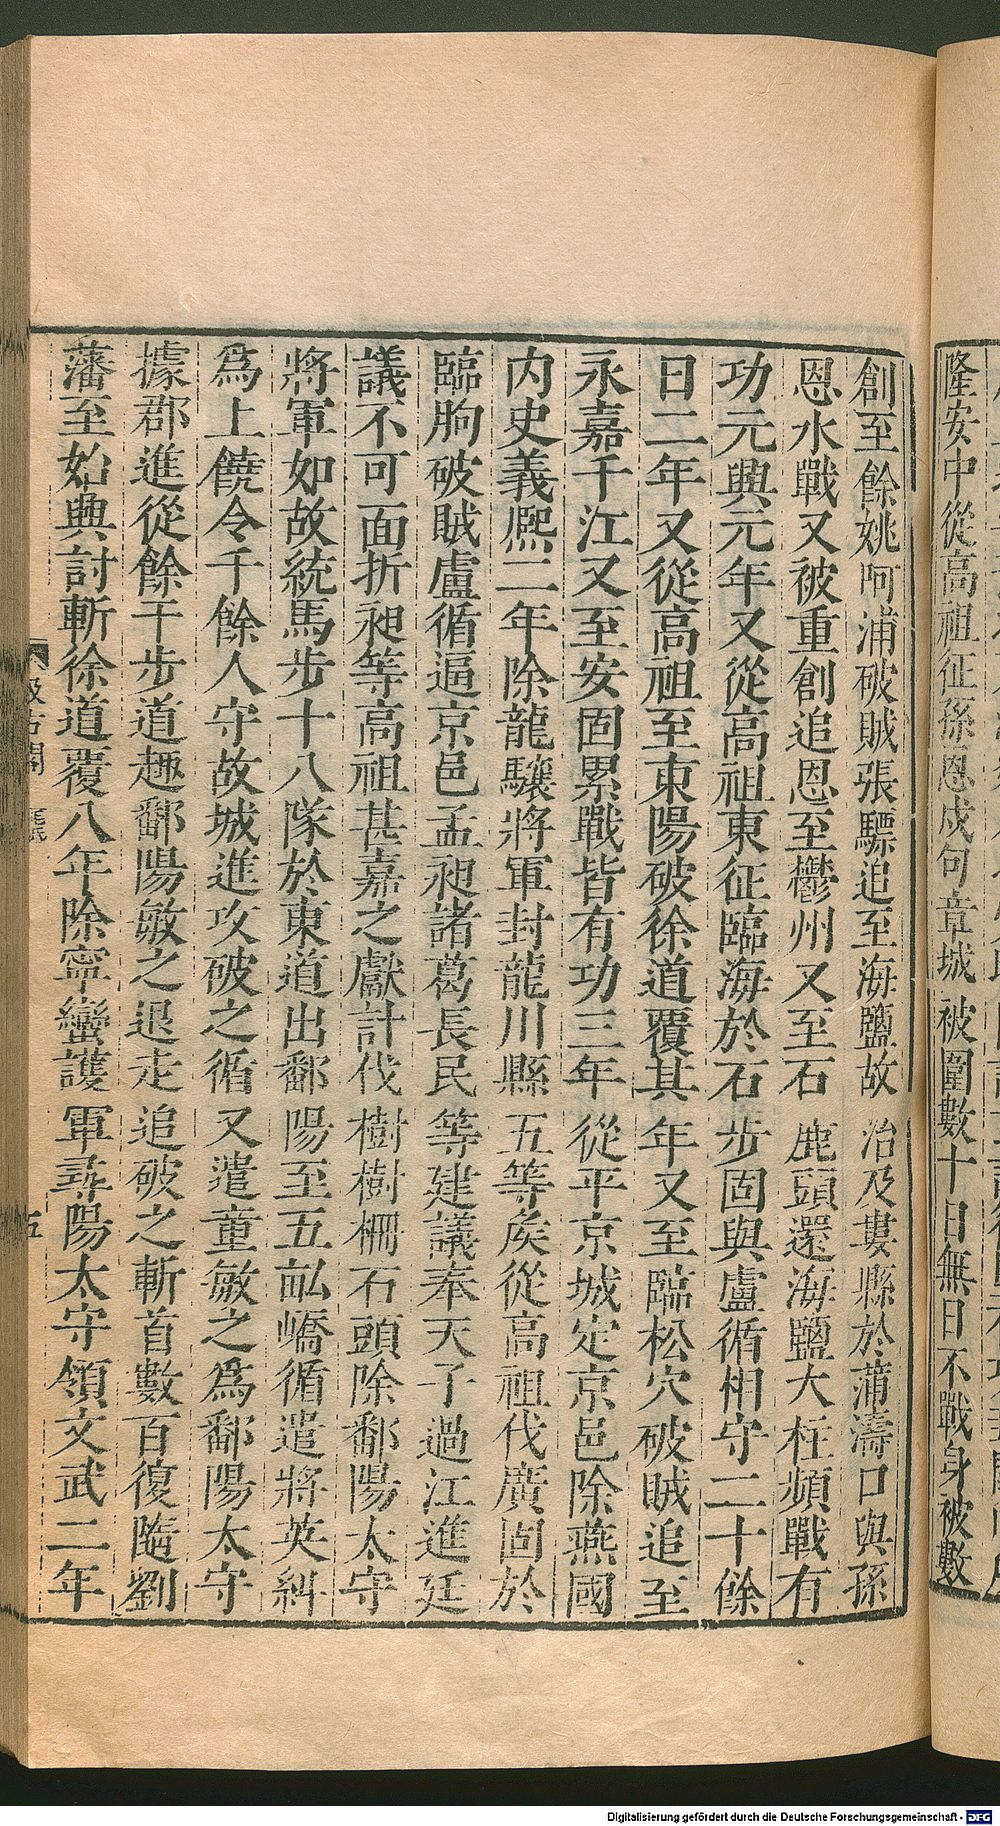 隆安中從高祖征孫恩戍句章城被圍數十日無日不戰身被數
創至餘姚呵浦破賊張驃追至海鹽故治及婁縣於蒲濤口與孫
恩水戰又被重創追恩至鬱州又至石鹿頭還海鹽大柱頻戰有
功元興元年又從高祖東征臨海於石步固與盧循相守二十餘
日二年又從高祖至東陽破徐道覆其年又至臨松穴破賊追至
永嘉千江又至安固累戰皆有功三年從平京城定京邑除燕國
内史義熙二年除龍驤將軍封龍川縣五等矦從高祖伐廣固於
臨朐破賊盧循逼京邑孟昶諸葛長民等建議奉天子過江進廷
議不可面折昶等高祖甚嘉之獻計伐樹樹柵石頭除鄱陽太守
將軍如故統馬步十八隊於東道出鄱陽至五畝嶠循遣將英糾
爲上饒令千餘人守故城進攻破之循又遣童敏之爲鄱陽太守
據郡進從餘干步道趣鄱陽敏之退走追破之斬首數百復隨劉
藩至始興討斬徐道覆八年除寧蠻護軍尋陽太守領文武二年
五
Digitalisierung gefördert durch die Deutsche Forschungsgemeinschaft - DFG